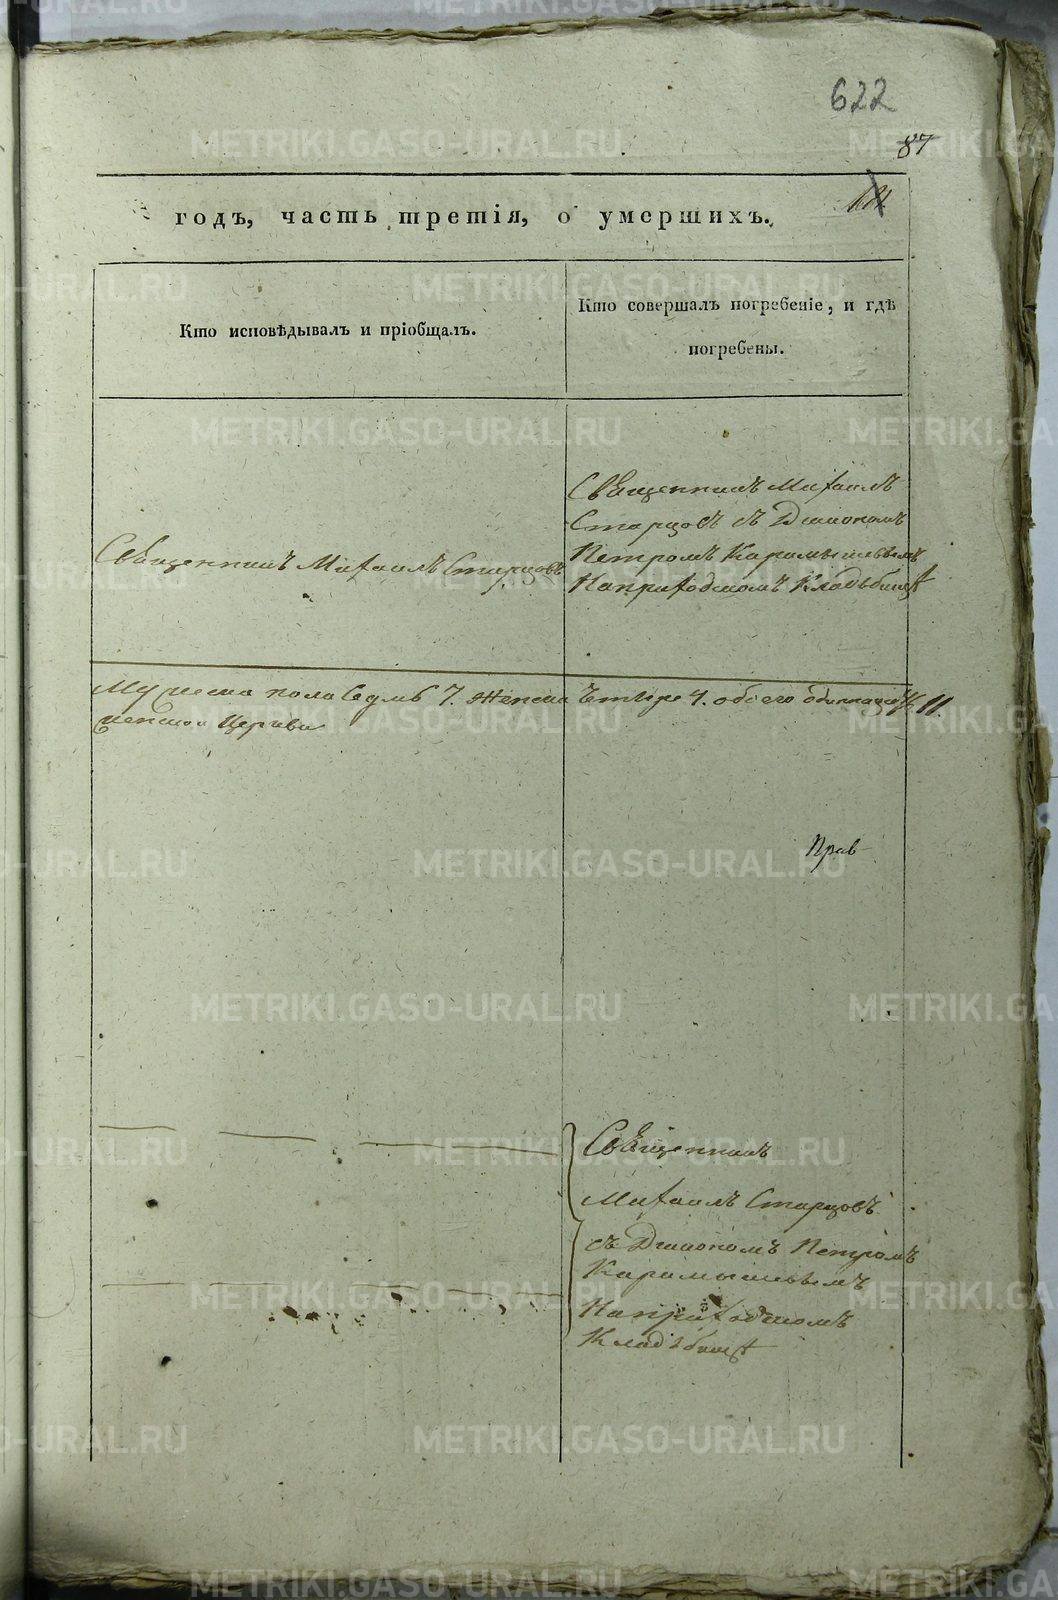 622
87
годъ, часть третія, о умершихъ.
Кто исповѣдывалъ и пріобщалъ.
Кто совершалъ погребеніе, и гдѣ
погребены.
Священникъ Михаилъ
Старцовъ съ Дьякономъ
Священникъ Михаилъ Старцовъ
Петромъ Карамышевымъ
На приходскомъ Кладьбищѣ
Мужеска пола Седмь 7. Женска Четыре 4. обоего одиннацеть 11.
Церкви
Прав
Священникъ
Михаилъ Старцовъ
съ Дьякономъ Петромъ
Карамышевымъ
На приходскомъ
Кладьбищѣ
METRIKI.GASO-URAL.RU